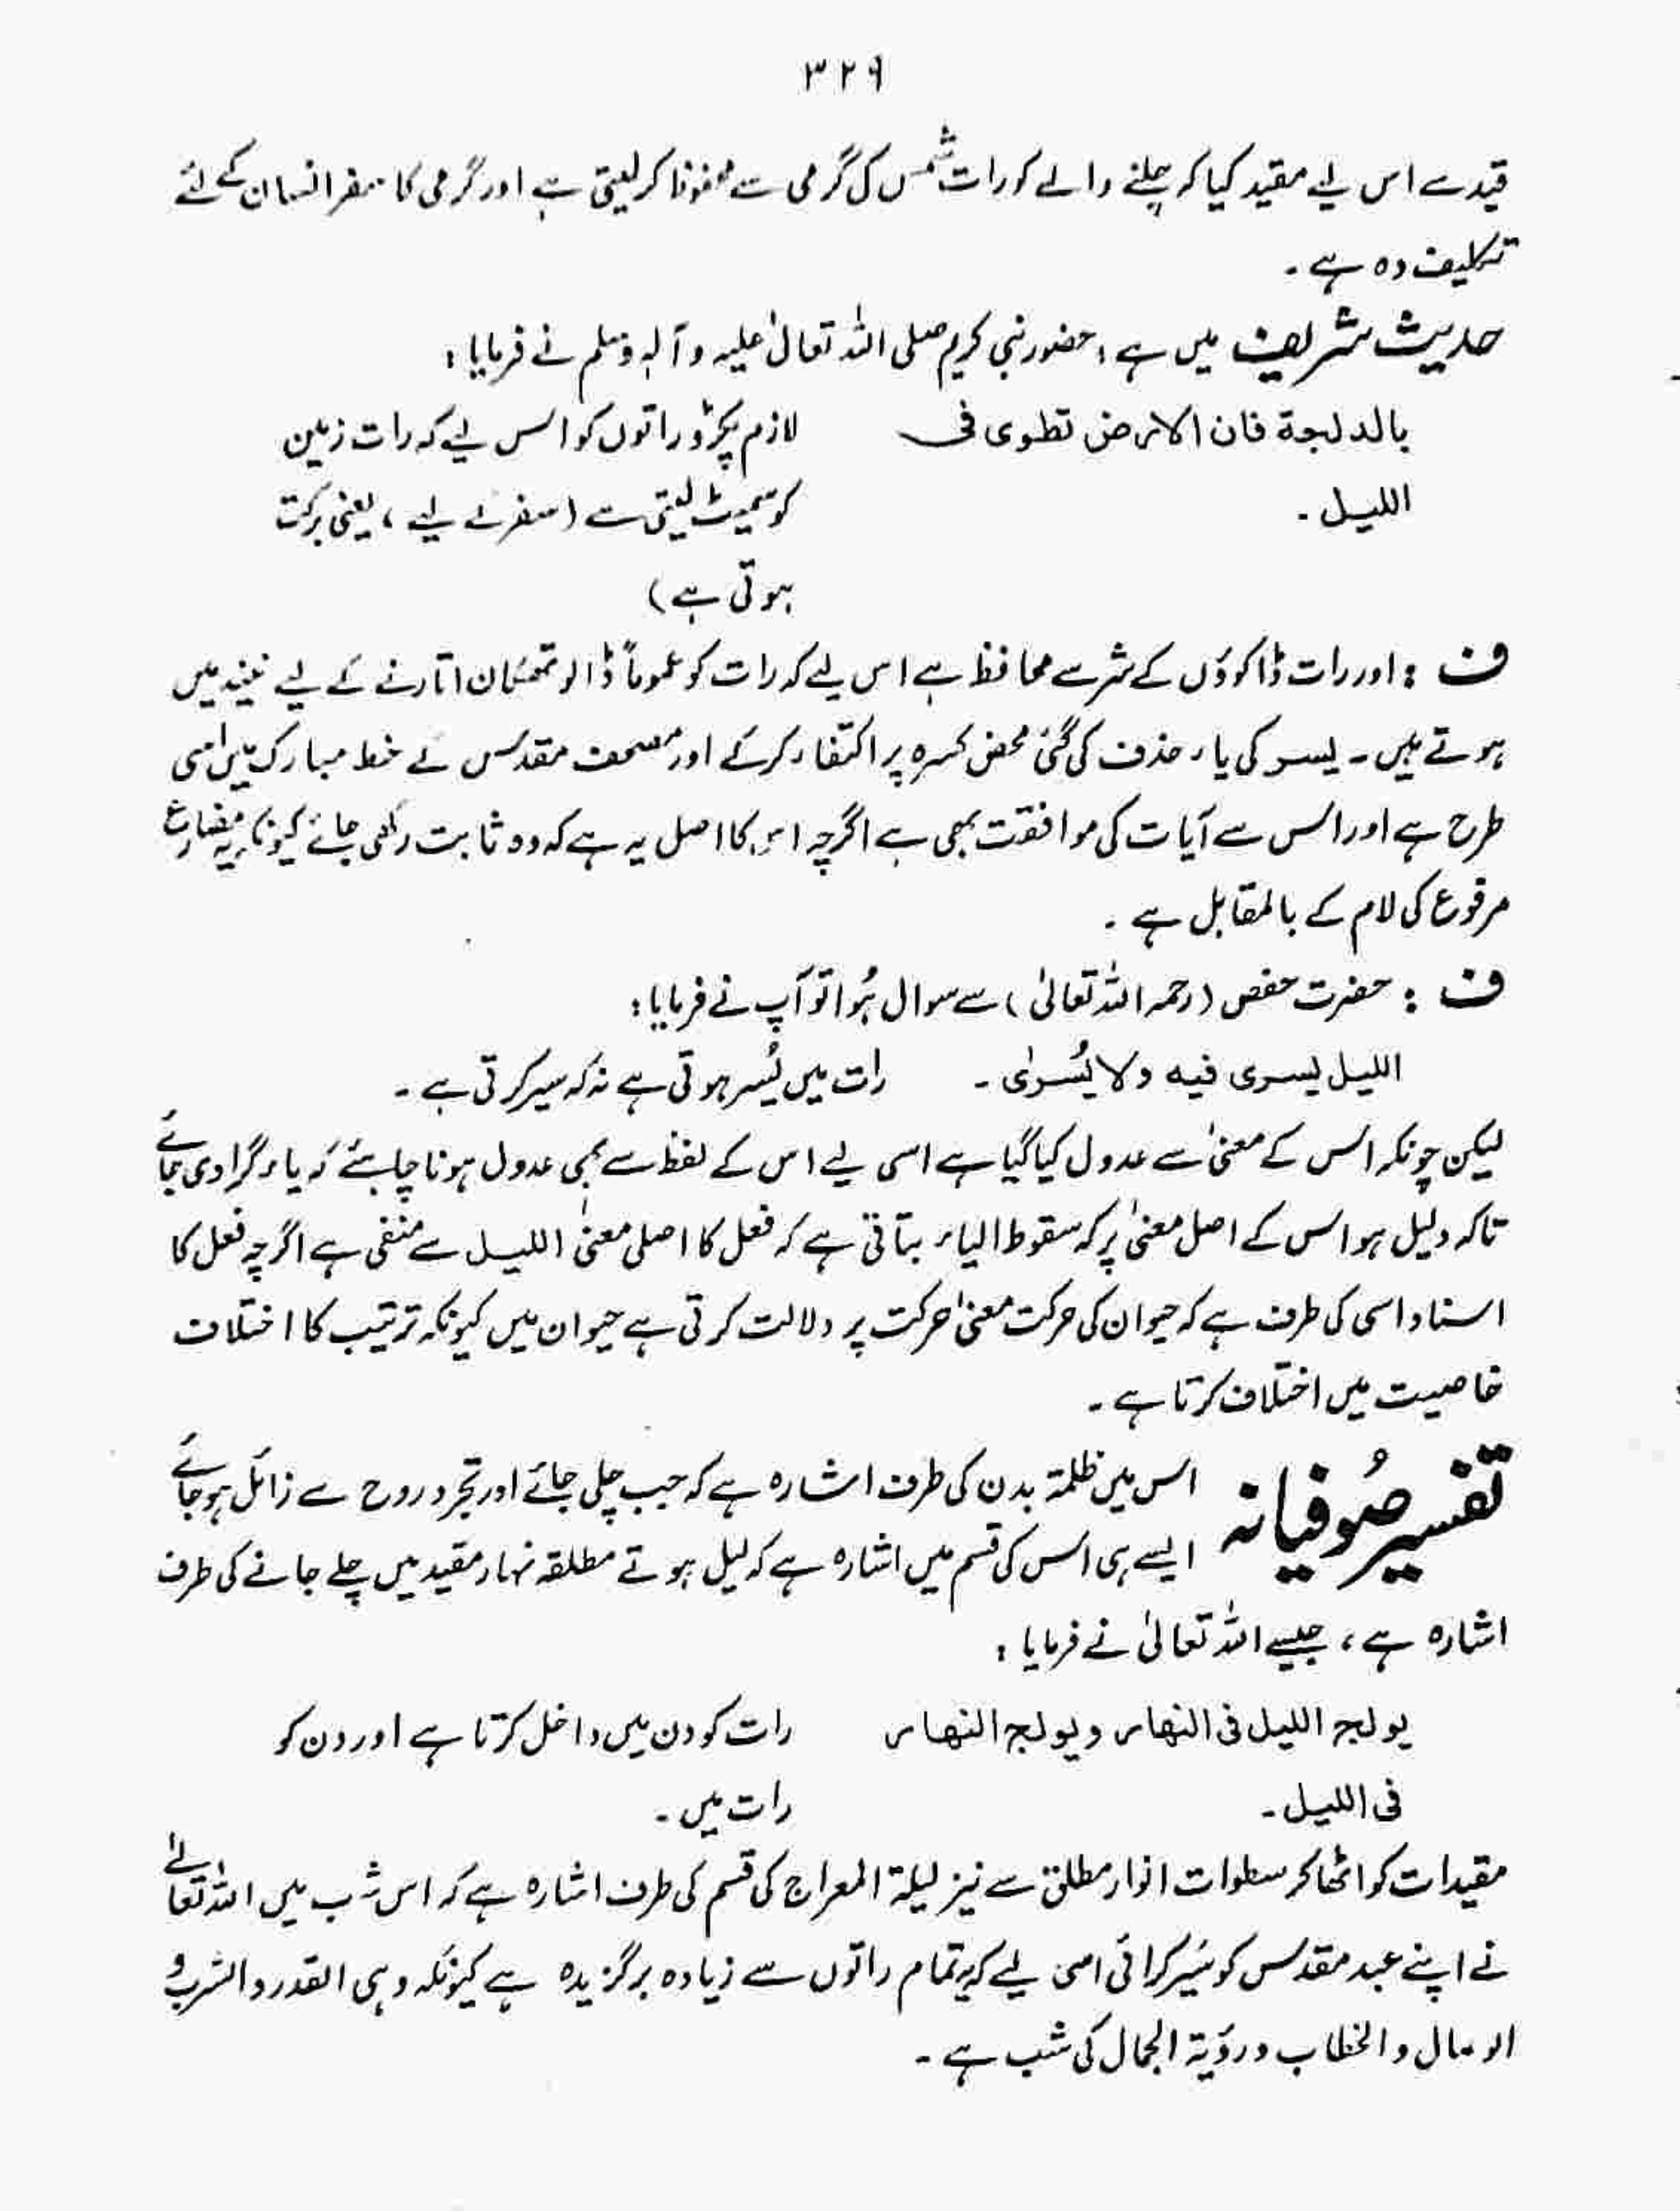 ۳۲۹
قید سے اس لیے مقید کیا کہ چلنے والے کو رات شمس کی گرمی سے محفوظ کر لیتی ہے اور گرمی کا سفر انسان کے لئے
تکلیف دہ ہے ۔
حدیث شریف میں ہے ، حضور نبی کریم صلی اللہ تعالیٰ علیہ وآلہٖ وسلم نے فرمایا :
بالدلجة فان الارض تطوی فی لازم پکڑو راتوں کو اس لیے کہ رات زمین
الليل ۔ کو سمیٹ لیتی ہے ( سفر کے لیے ، یعنی برکت
ہوتی ہے )
ف : اور رات ڈاکوؤں کے شر سے محافظ ہے اس لیے کہ رات کو عموماً ڈاکو تھکان اتارنے کے لیے نیند میں
ہوتے ہیں ۔ یسر کی یاء حذف کی گئی محض کسرہ پر اکتفاء کر کے اور مصحف مقدس کے خط مبارک میں اسی
طرح ہے اور اس سے آیات کی موافقت بھی ہے اگرچہ اس کا اصل یہ ہے کہ وہ ثابت رکھی جائے کیونکہ یہ مضارع
مرفوع کی لام کے بالمقابل ہے ۔
ف : حضرت حفص ( رحمہ اللہ تعالیٰ ) سے سوال ہُوا تو آپ نے فرمایا :
الليل یسری فیه ولا یُسرٰی ۔ رات میں یُسر ہوتی ہے نہ کہ سیر کرتی ہے ۔
لیکن چونکہ اس کے معنیٰ سے عدول کیا گیا ہے اسی لیے اس کے لفظ سے بھی عدول ہونا چاہئے کہ یاء گرا دی جائے
تاکہ دلیل ہو اس کے اصل معنیٰ پر کہ سقوط الیاء بتاتی ہے کہ فعل کا اصلی معنیٰ اللیل سے منفی ہے اگرچہ فعل کا
اسناد اسی کی طرف ہے کہ حیوان کی حرکت معنیٰ حرکت پر دلالت کرتی ہے حیوان میں کیونکہ ترتیب کا اختلاف
خاصیت میں اختلاف کرتا ہے ۔
تفسیر صُوفیانہ اس میں ظلمۃ بدن کی طرف اشارہ ہے کہ جب چلی جائے اور تجرد روح سے زائل ہو جائے
ایسے ہی اس کی قسم میں اشارہ ہے کہ لیل ہوتے مطلقہ نہار مقید میں چلے جانے کی طرف
اشارہ ہے ، جیسے اللہ تعالیٰ نے فرمایا :
یولج الليل فی النهار ویولج النهار رات کو دن میں داخل کرتا ہے اور دن کو
فی الليل ۔ رات میں ۔
مقیدات کو اٹھا کر سطوات انوار مطلق سے نیز لیلۃ المعراج کی قسم کی طرف اشارہ ہے کہ اس شب میں اللہ تعالےٰ
نے اپنے عبد مقدس کو سَیر کرائی اسی لیے کہ یہ تمام راتوں سے زیادہ برگزیدہ ہے کیونکہ وہی القدر والشرب و
الوصال والخطاب ورؤیۃ الجمال کی شب ہے ۔